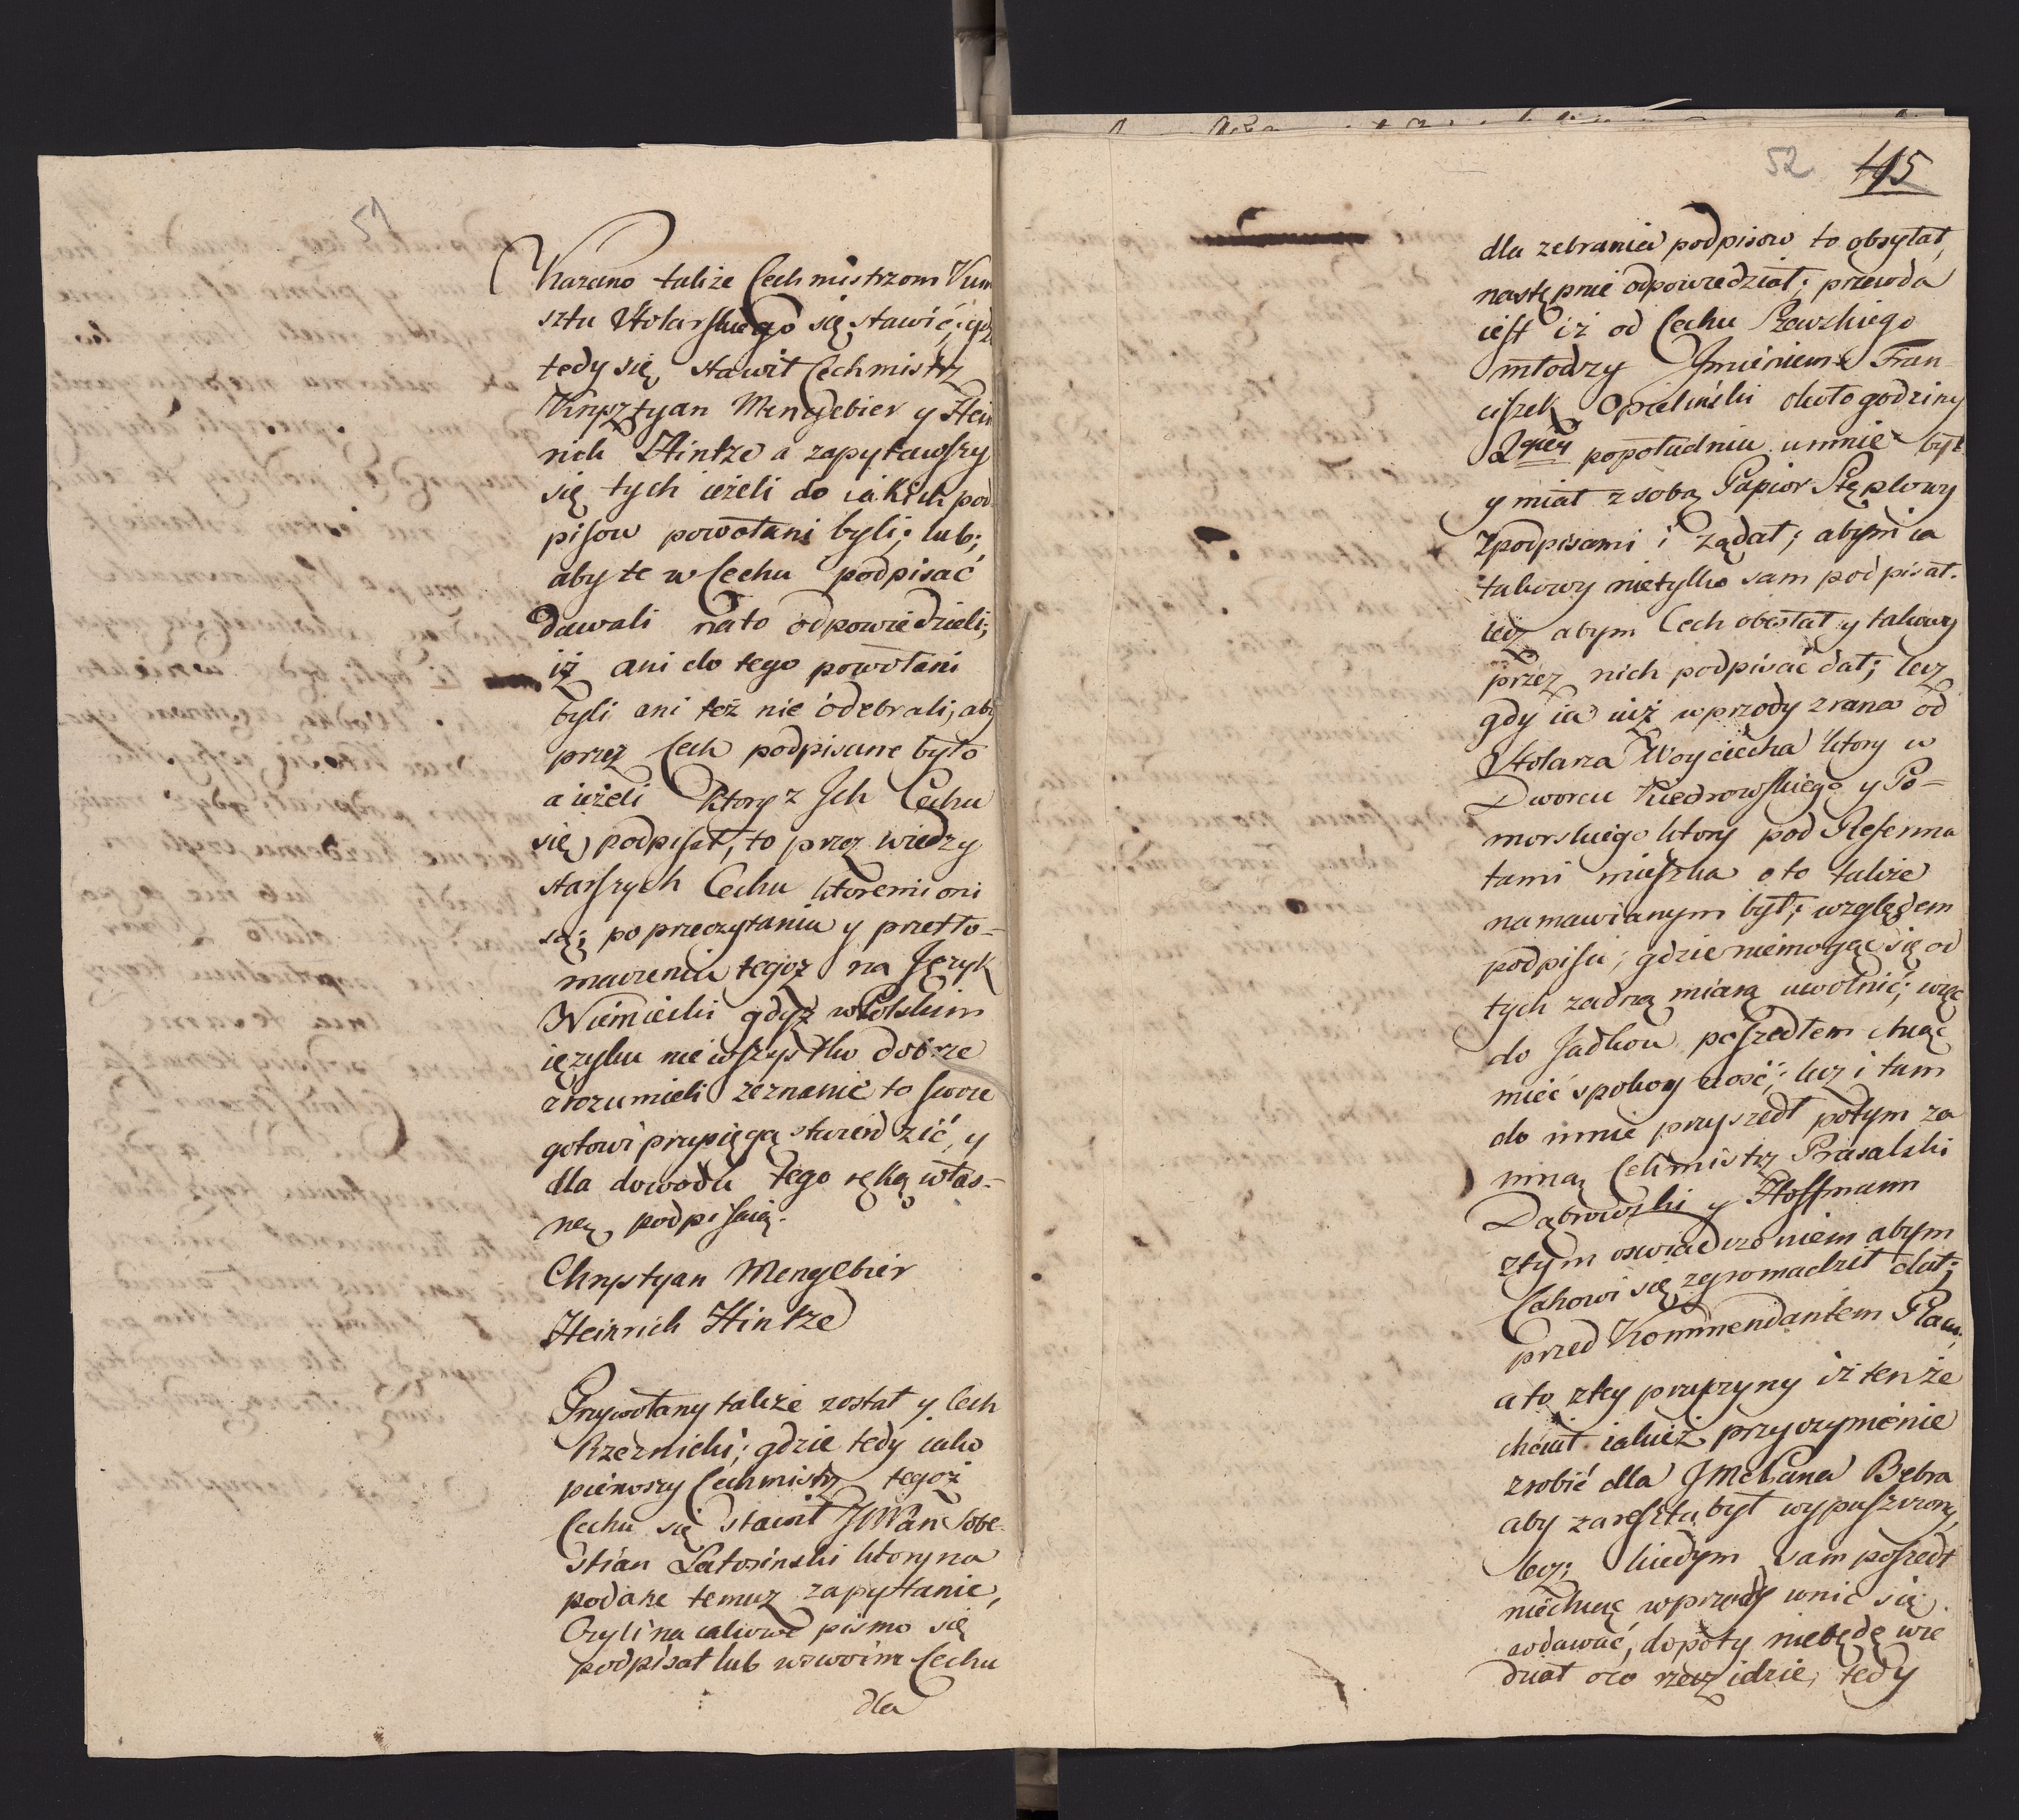 51
Kazano takze Cechmistrzom Kun
sztu Stolarskiego się stawić; gdz
tedy się stawił Cechmistrz
Krysztyan Mengebier y Hein
rich Hintze a zapytawszy
się tych ieżeli do iakich pod
pisow powołani byli; lub;
aby te w Cechu podpisać
dawali nato odpowiedzieli;
iż ani do tego powołani
byli ani też nie odebrali, aby
przez Cech podpisane było
a ieżeli ktory z Ich Cechu
się podpisał, to prez wiedzy
starszych Cechu ktoremi oni
są; po przeczytaniu y przetło-
maczeniu tegoz na Język
Niemiecki gdyż w Polskim
ięzyku nie wszystko dobrze
zrozumieli zeznanie to swoie
gotowi przysięgą stwierdzić, y
dla dowodu tego ręką włas-
ną podpisuią.
Chrystyan Mengebier
Heinrich Hintze
Przywołany takze został y Cech
Rzeznicki; gdzie tedy iako
pierwszy Cechmistrz tegoż
Cechu się stawił JMPan Sobe-
stian Latosinski ktory na
podane temuz zapytanie,
Czyli na iakowe pismo się
podpisał lub w swoim Cechu
dla
52 115
dla zebrania podpisow to obsyłał,
następnie odpowiedział; prawda
iest iż od Cechu Szewzkiego
młodzy Jmieniem Fran-
ciszek Opieliński około godziny
2giey popołudniu u mnie był
y miał z sobą Papior Stęplowy
z podpisami i ządał; abym ia
takowy nietylko sam podpisał.
lecz abym Cech obesłał y takowy
przez nich podpisać dał; lecz
gdy ia iuż wprzody zrana od
Stolarza Woyciecha ktory w
Dworcu Kiedrowskiego y Po-
morskiego ktory pod Reforma
tami mieszka o to takze
namawianym był; względem
podpisu; gdzie niemogąc się od
tych zadną miarą uwolnić; więc
do Jadkow poszedłem chcąc
mieć spokoyność; lecz i tam
do mnie przyszedł potym za
mną Cechmistrz Prasalski
Dąbrowski y Hoffmann
ztym oswiadczeniem abym
Cechowi się zgromadzić dał;
przed Kommendantem Placu
a to ztey przyczyny iż tenże
chciał iakieś przyczynienie
zrobić dla JMcPana Bebra
aby zaresztu był wypuszczony,
lecz; kiedym sam poszedł
niechcąc wprzody wnic się
wdawać, dopoty niebędę wie
dział oco rzecz idzie, tedy